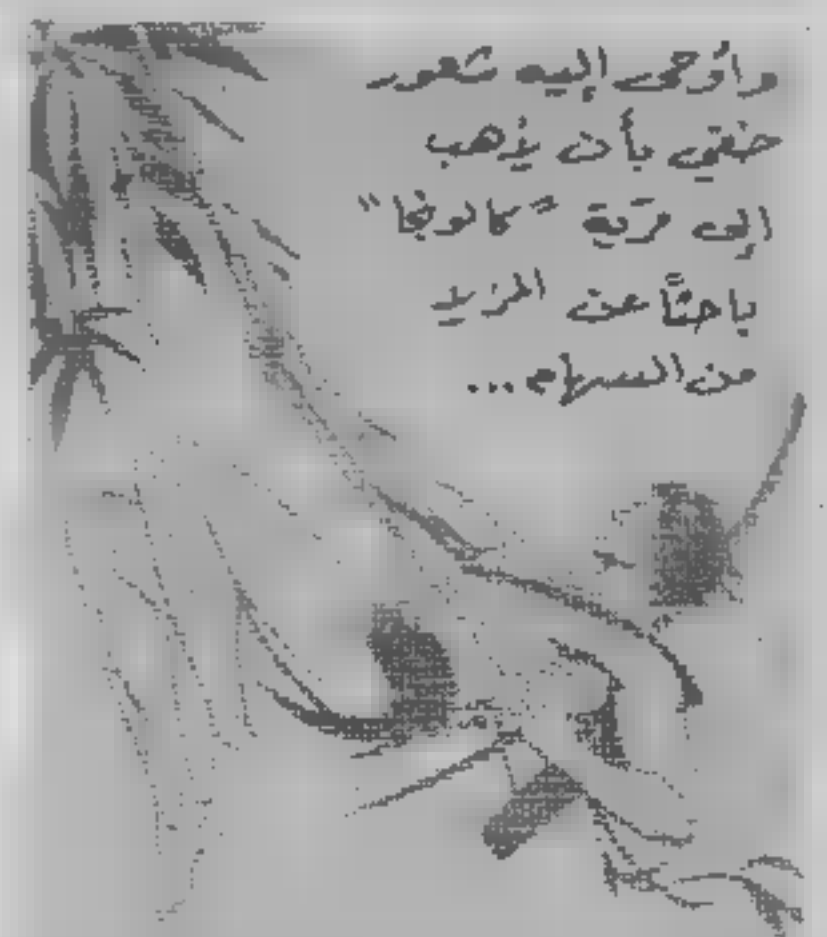 وأوحى إليه شعور
خفي بأن يذهب
إلى قرية "كالونجا"
باحثاً عن المزيد
من السهام...